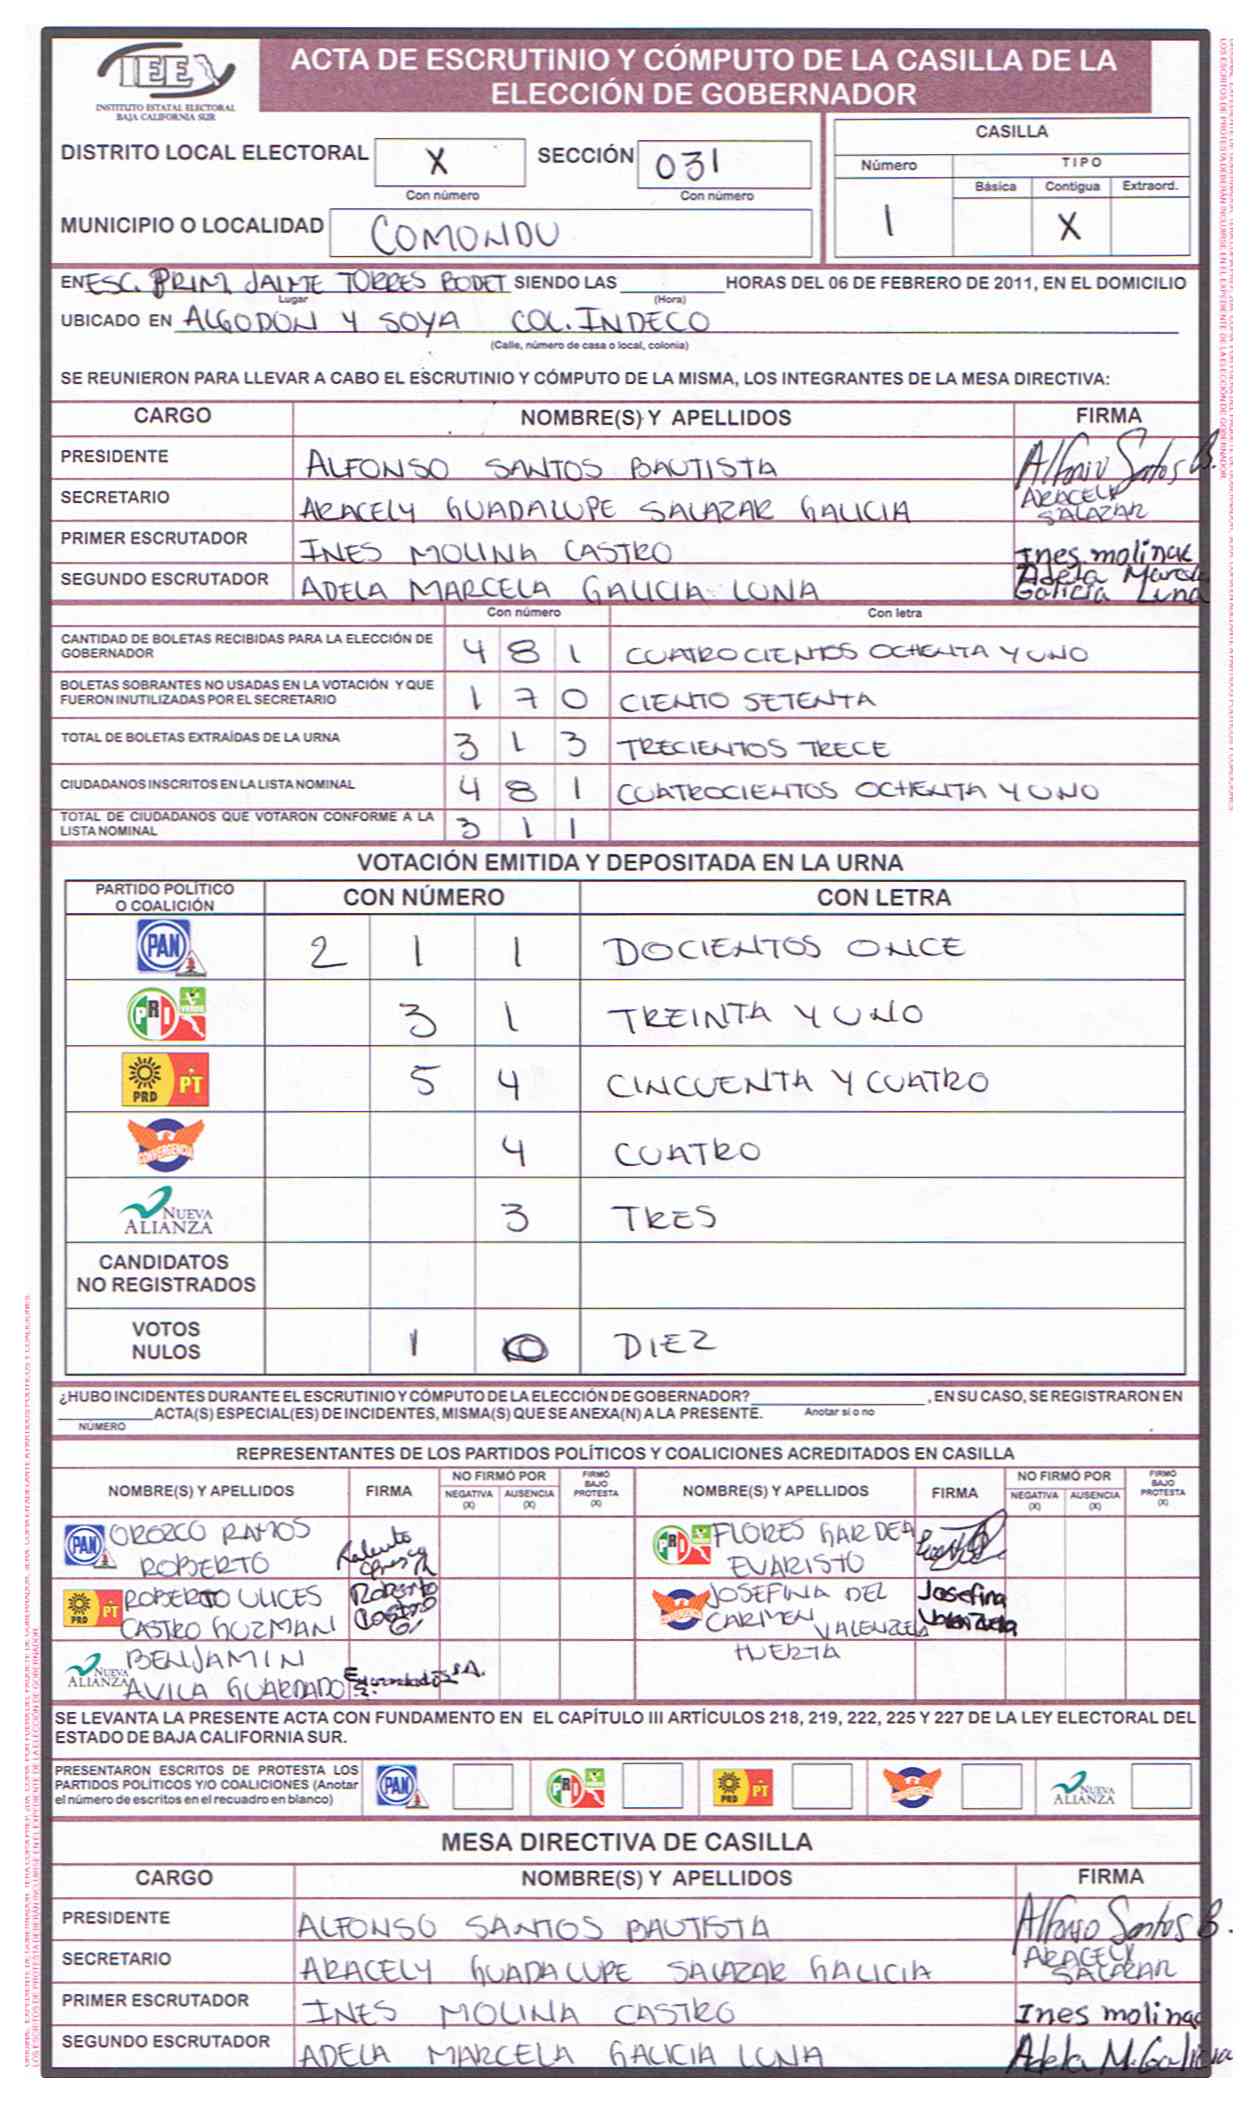 IEE
INSTITUTO ESTATAL ELECTORAL
BAJA CALIFORNIA SUR
ACTA DE ESCRUTINIO Y CÓMPUTO DE LA CASILLA DE LA
ELECCIÓN DE GOBERNADOR
DISTRITO LOCAL ELECTORAL X SECCIÓN 031
Con número Con número
MUNICIPIO O LOCALIDAD COMONDU
CASILLA
Número TIPO
Básica Contigua Extraord.
1 X
EN ESC. PRIM JAIME TORRES BODET SIENDO LAS HORAS DEL 06 DE FEBRERO DE 2011, EN EL DOMICILIO
Lugar (Hora)
UBICADO EN ALGODON Y SOYA COL. INDECO
(Calle, número de casa o local, colonia)
SE REUNIERON PARA LLEVAR A CABO EL ESCRUTINIO Y CÓMPUTO DE LA MISMA, LOS INTEGRANTES DE LA MESA DIRECTIVA:
CARGO NOMBRE(S) Y APELLIDOS FIRMA
PRESIDENTE ALFONSO SANTOS BAUTISTA Alfonso Santos B.
SECRETARIO ARACELY GUADALUPE SALAZAR GALICIA ARACELY
SALAZAR
PRIMER ESCRUTADOR INES MOLINA CASTRO Ines molina c
SEGUNDO ESCRUTADOR ADELA MARCELA GALICIA LUNA Adela Marcela
Galicia Luna
Con número Con letra
CANTIDAD DE BOLETAS RECIBIDAS PARA LA ELECCIÓN DE
GOBERNADOR 4 8 1 CUATROCIENTOS OCHENTA Y UNO
BOLETAS SOBRANTES NO USADAS EN LA VOTACIÓN Y QUE
FUERON INUTILIZADAS POR EL SECRETARIO 1 7 0 CIENTO SETENTA
TOTAL DE BOLETAS EXTRAÍDAS DE LA URNA 3 1 3 TRECIENTOS TRECE
CIUDADANOS INSCRITOS EN LA LISTA NOMINAL 4 8 1 CUATROCIENTOS OCHENTA Y UNO
TOTAL DE CIUDADANOS QUE VOTARON CONFORME A LA
LISTA NOMINAL 3 1 1
VOTACIÓN EMITIDA Y DEPOSITADA EN LA URNA
PARTIDO POLÍTICO
O COALICIÓN CON NÚMERO CON LETRA
PAN 2 1 1 DOCIENTOS ONCE
PRI VERDE 3 1 TREINTA Y UNO
PRD PT 5 4 CINCUENTA Y CUATRO
CONVERGENCIA 4 CUATRO
NUEVA
ALIANZA 3 TRES
CANDIDATOS
NO REGISTRADOS
VOTOS
NULOS 1 0 DIEZ
¿HUBO INCIDENTES DURANTE EL ESCRUTINIO Y CÓMPUTO DE LA ELECCIÓN DE GOBERNADOR? , EN SU CASO, SE REGISTRARON EN
ACTA(S) ESPECIAL(ES) DE INCIDENTES, MISMA(S) QUE SE ANEXA(N) A LA PRESENTE. Anotar si o no
NÚMERO
REPRESENTANTES DE LOS PARTIDOS POLÍTICOS Y COALICIONES ACREDITADOS EN CASILLA
NOMBRE(S) Y APELLIDOS FIRMA NO FIRMÓ POR NEGATIVA (X) AUSENCIA (X) FIRMÓ BAJO PROTESTA (X) NOMBRE(S) Y APELLIDOS FIRMA NO FIRMÓ POR NEGATIVA (X) AUSENCIA (X) FIRMÓ BAJO PROTESTA (X)
PAN OROZCO RAMOS PRI FLORES GARDEA
ROBERTO EVARISTO
PRD PT ROBERTO ULICES Roberto CONVERGENCIA JOSEFINA DEL Josefina
CASTRO GUZMAN Castro G. CARMEN VALENZUELA Valenzuela
NUEVA ALIANZA BENJAMIN HUERTA
AVILA GUARDADO
SE LEVANTA LA PRESENTE ACTA CON FUNDAMENTO EN EL CAPÍTULO III ARTÍCULOS 218, 219, 222, 225 Y 227 DE LA LEY ELECTORAL DEL
ESTADO DE BAJA CALIFORNIA SUR.
PRESENTARON ESCRITOS DE PROTESTA LOS
PARTIDOS POLÍTICOS Y/O COALICIONES (Anotar
el número de escritos en el recuadro en blanco)
PAN PRI PRD PT CONVERGENCIA NUEVA ALIANZA
MESA DIRECTIVA DE CASILLA
CARGO NOMBRE(S) Y APELLIDOS FIRMA
PRESIDENTE ALFONSO SANTOS BAUTISTA Alfonso Santos B.
SECRETARIO ARACELY GUADALUPE SALAZAR GALICIA ARACELY
SALAZAR
PRIMER ESCRUTADOR INES MOLINA CASTRO Ines molina c
SEGUNDO ESCRUTADOR ADELA MARCELA GALICIA LUNA Adela M. Galicia